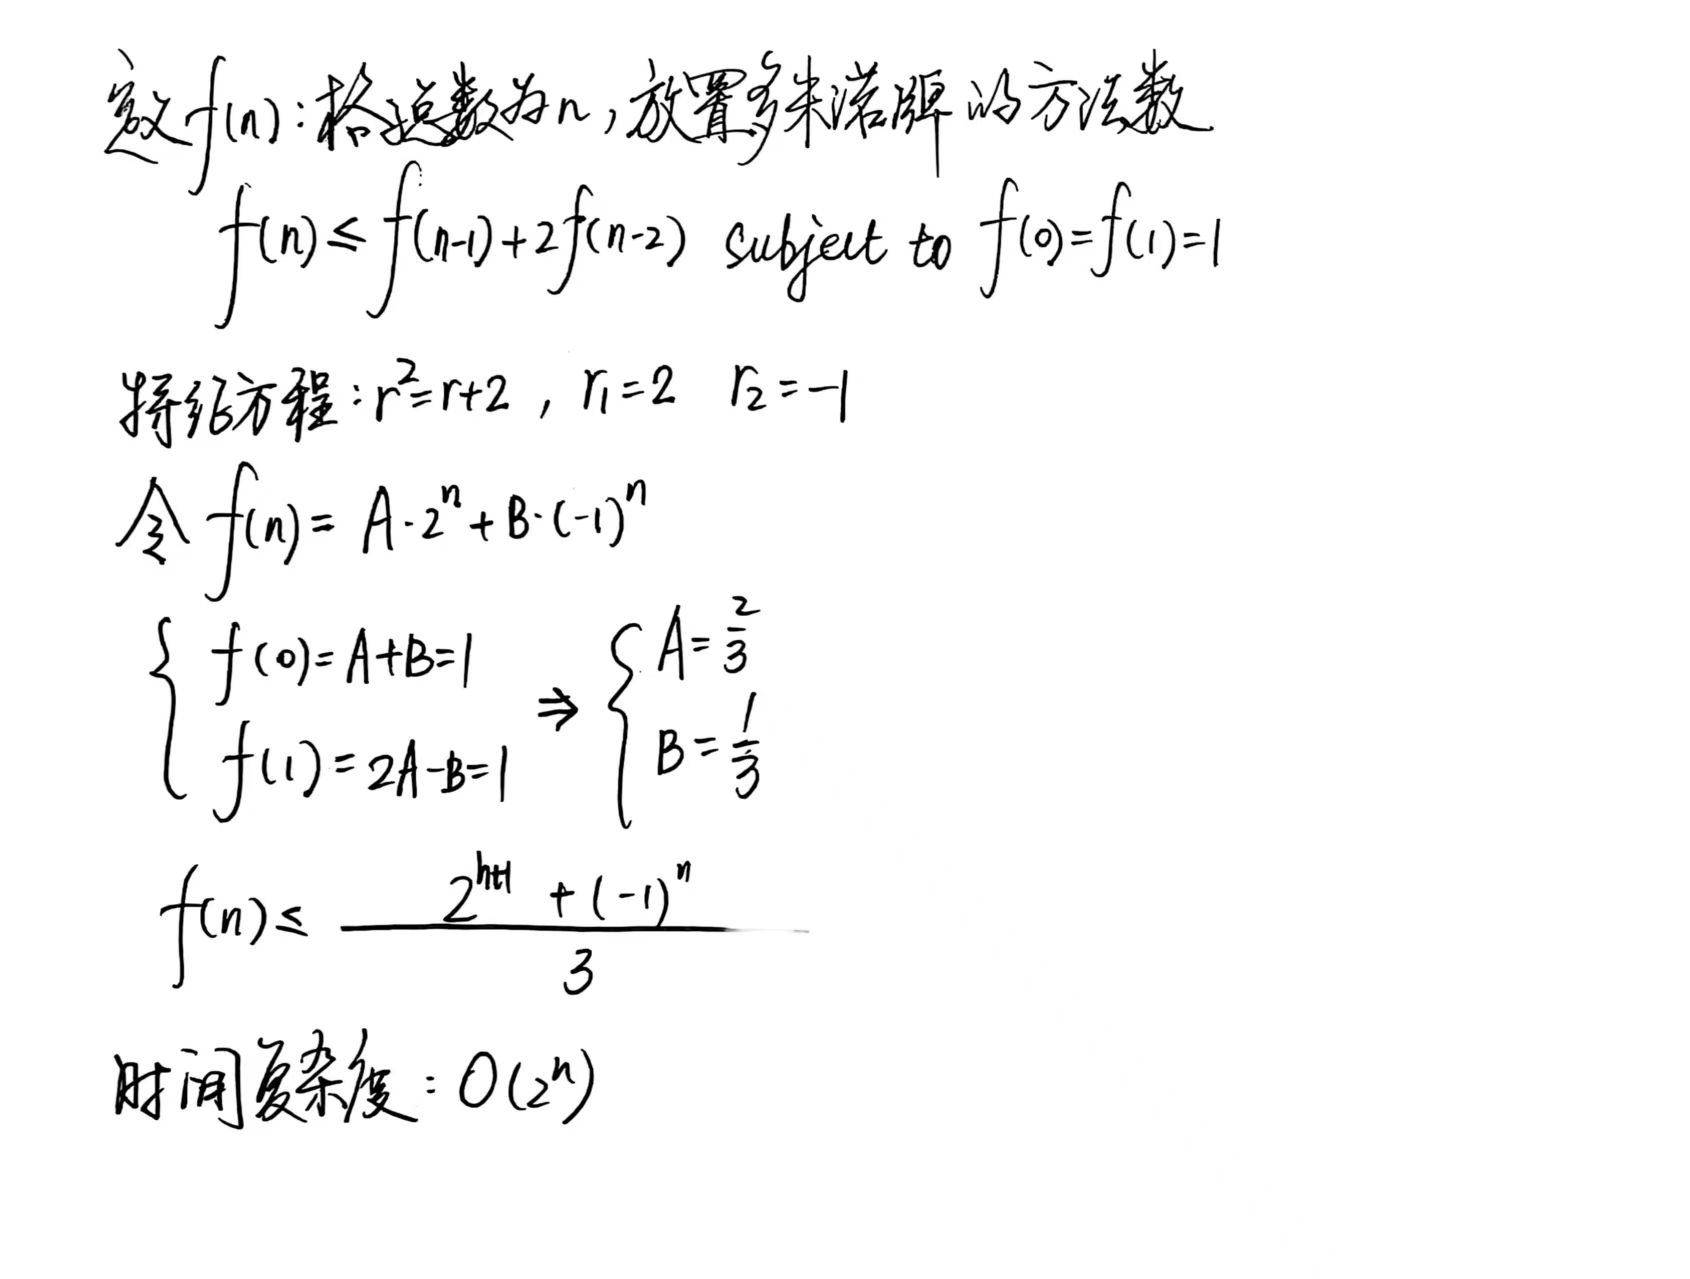 定义f(n):格总数为n,放置多米诺牌的方法数
f(n)≤f(n-1)+2f(n-2) subject to f(0)=f(1)=1
特征方程:r²=r+2, r₁=2 r₂=-1
令f(n)=A·2ⁿ+B·(-1)ⁿ
{ f(0)=A+B=1 f(1)=2A-B=1 ⇒ { A=2/3 B=1/3
f(n)≤ (2ⁿ⁺¹+(-1)ⁿ)/3
时间复杂度:O(2ⁿ)